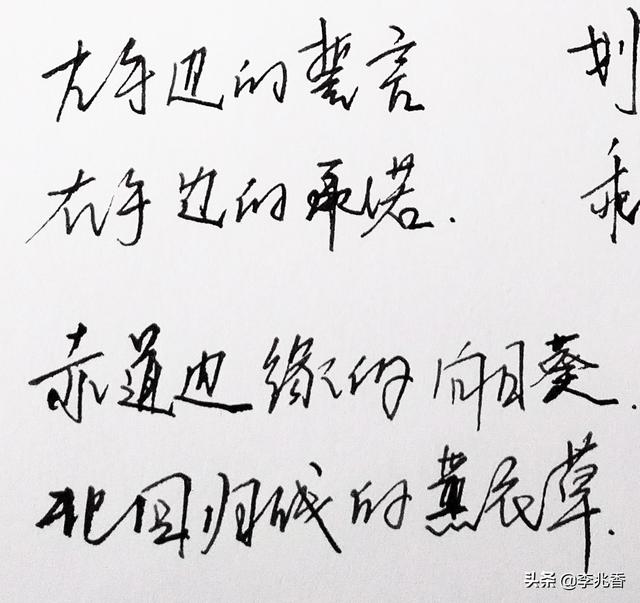 左手边的誓言 划
右手边的承诺. 乖
赤道边缘的向日葵.
北回归线的薰衣草.
头条 @李兆香